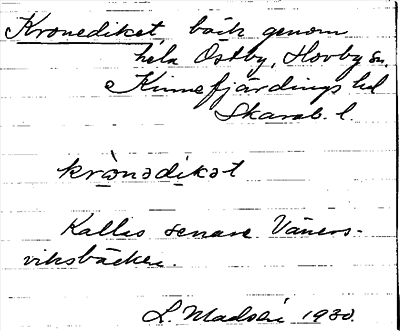 Kronediket, bäck genom
hela Östby, Hovby sn.
Kinnefjärdings hd
Skarab. l.
krònədikət
Kallas senare Väners-
viksbäcken.
L. Madsén 1930.